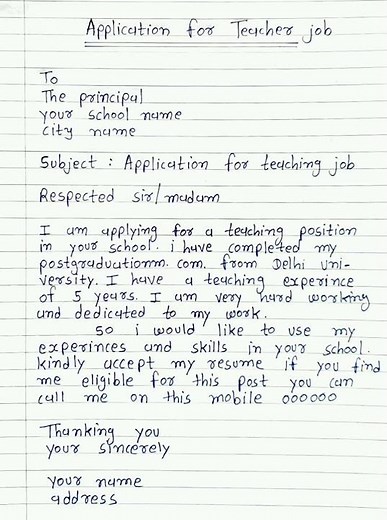 Application for Teacher job
To
The principal
your school name
city name
Subject : Application for teaching job
Respected sir/madam
I am applying for a teaching position
in your school. i have completed my
postgraduationm. com. from Delhi Uni-
versity. I have a teaching experince
of 5 years. I am very hard working
and dedicated to my work.
so i would like to use my
experinces and skills in your school.
kindly accept my resume if you find
me eligible for this post you can
call me on this mobile 000000
Thanking you
your sincerely
your name
address